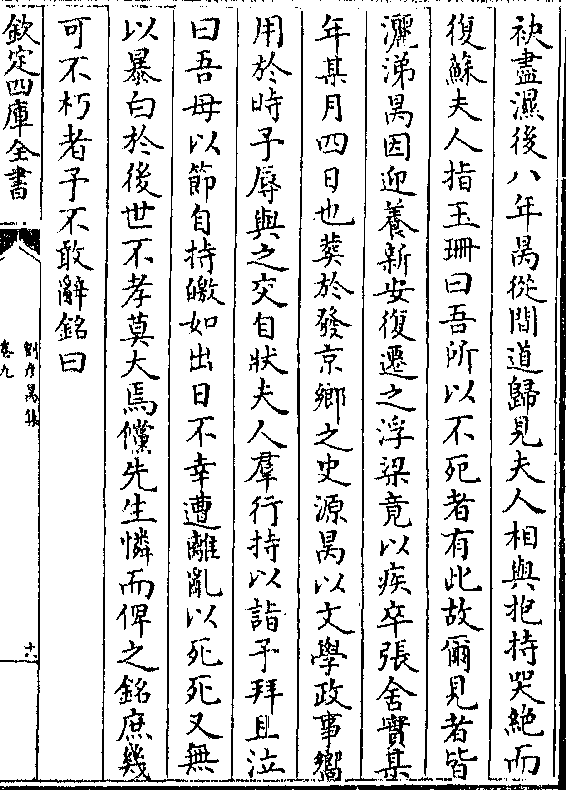 袂盡濕後八年昺從間道歸見夫人相與抱持哭絶而
復蘇夫人指玉珊曰吾所以不死者有此故爾見者皆
灑涕昺因迎養新安復遷之浮梁竟以疾卒張舍實某
年某月四日也葬於發京鄉之史源昺以文學政事嚮
用於時予辱與之交自狀夫人羣行持以詣予拜且泣
曰吾母以節自持皦如出日不幸遭離亂以死死又無
以暴白於後世不孝莫大焉儻先生憐而俾之銘庶幾
可不朽者予不敢辭銘曰
欽定四庫全書
卷九